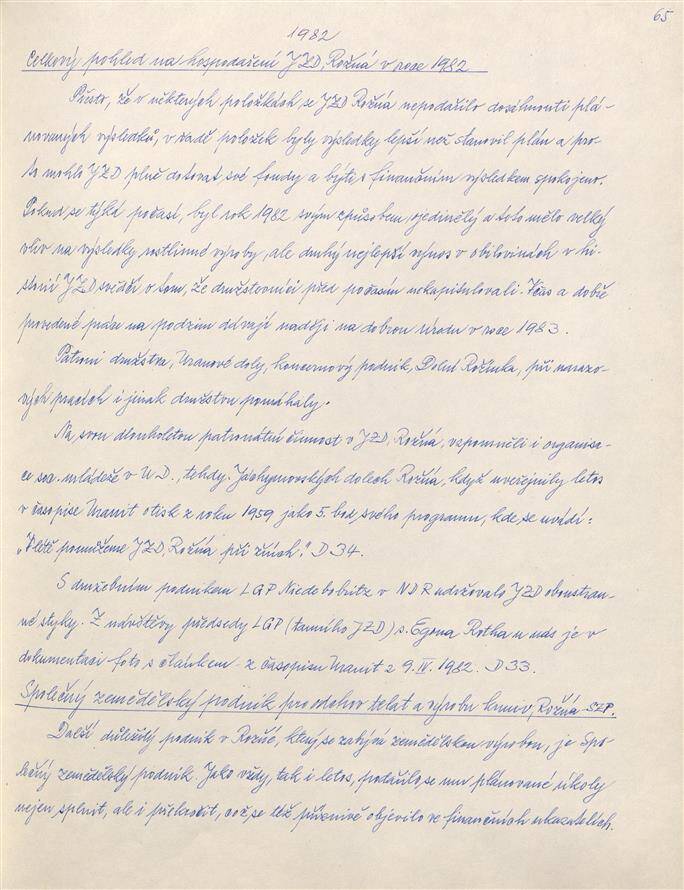 65
1982
Celkový pohled na hospodaření JZD Rožná v roce 1982
Přesto, že v některých položkách se JZD Rožná nepodařilo dosáhnouti plá-
novaných výsledků, v řadě položek byly výsledky lepší než stanovil plán a pro-
to mohlo JZD plně dotovat své fondy a býti s finančním výsledkem spokojeno.
Pokud se týká počasí, byl rok 1982 svým způsobem ojedinělý a toto mělo velký
vliv na výsledky rostlinné výroby, ale druhý nejlepší výnos v obilovinách v hi-
storii JZD svědčí o tom, že družstevníci před počasím nekapitulovali. Včas a dobře
provedené práce na podzim dávají naději na dobrou úrodu v roce 1983.
Patroni družstva, Uranové doly, koncernový podnik, Dolní Rožínka, při nárazo-
vých pracích i jinak družstvu pomáhaly.
Na svou dlouholetou patronátní činnost v JZD Rožná, vzpomněli i organisa-
ce soc. mládeže v U.D., tehdy Jáchymovských dolech Rožná, když uveřejnily letos
v časopise Uranit otisk z roku 1959 jako 5. bod svého programu, kde se uvádí:
"V létě pomůžeme JZD Rožná při žních." D 34.
S družebním podnikem LGP Niedebobritz v NDR udržovalo JZD oboustran-
né styky. Z návštěvy předsedy LGP (tamního JZD) s. Egona Rotha u nás je v
dokumentaci foto s článkem z časopisu Uranit z 9. IV. 1982. D 33.
Společný zemědělský podnik pro odchov telat a výrobu krmiv, Rožná SZP.
Další důležitý podnik v Rožné, který se zabývá zemědělskou výrobou, je Spo-
lečný zemědělský podnik. Jako vždy, tak i letos, podařilo se mu plánované úkoly
nejen splnit, ale i překročit, což se též příznivě objevilo ve finančních ukazatelích.